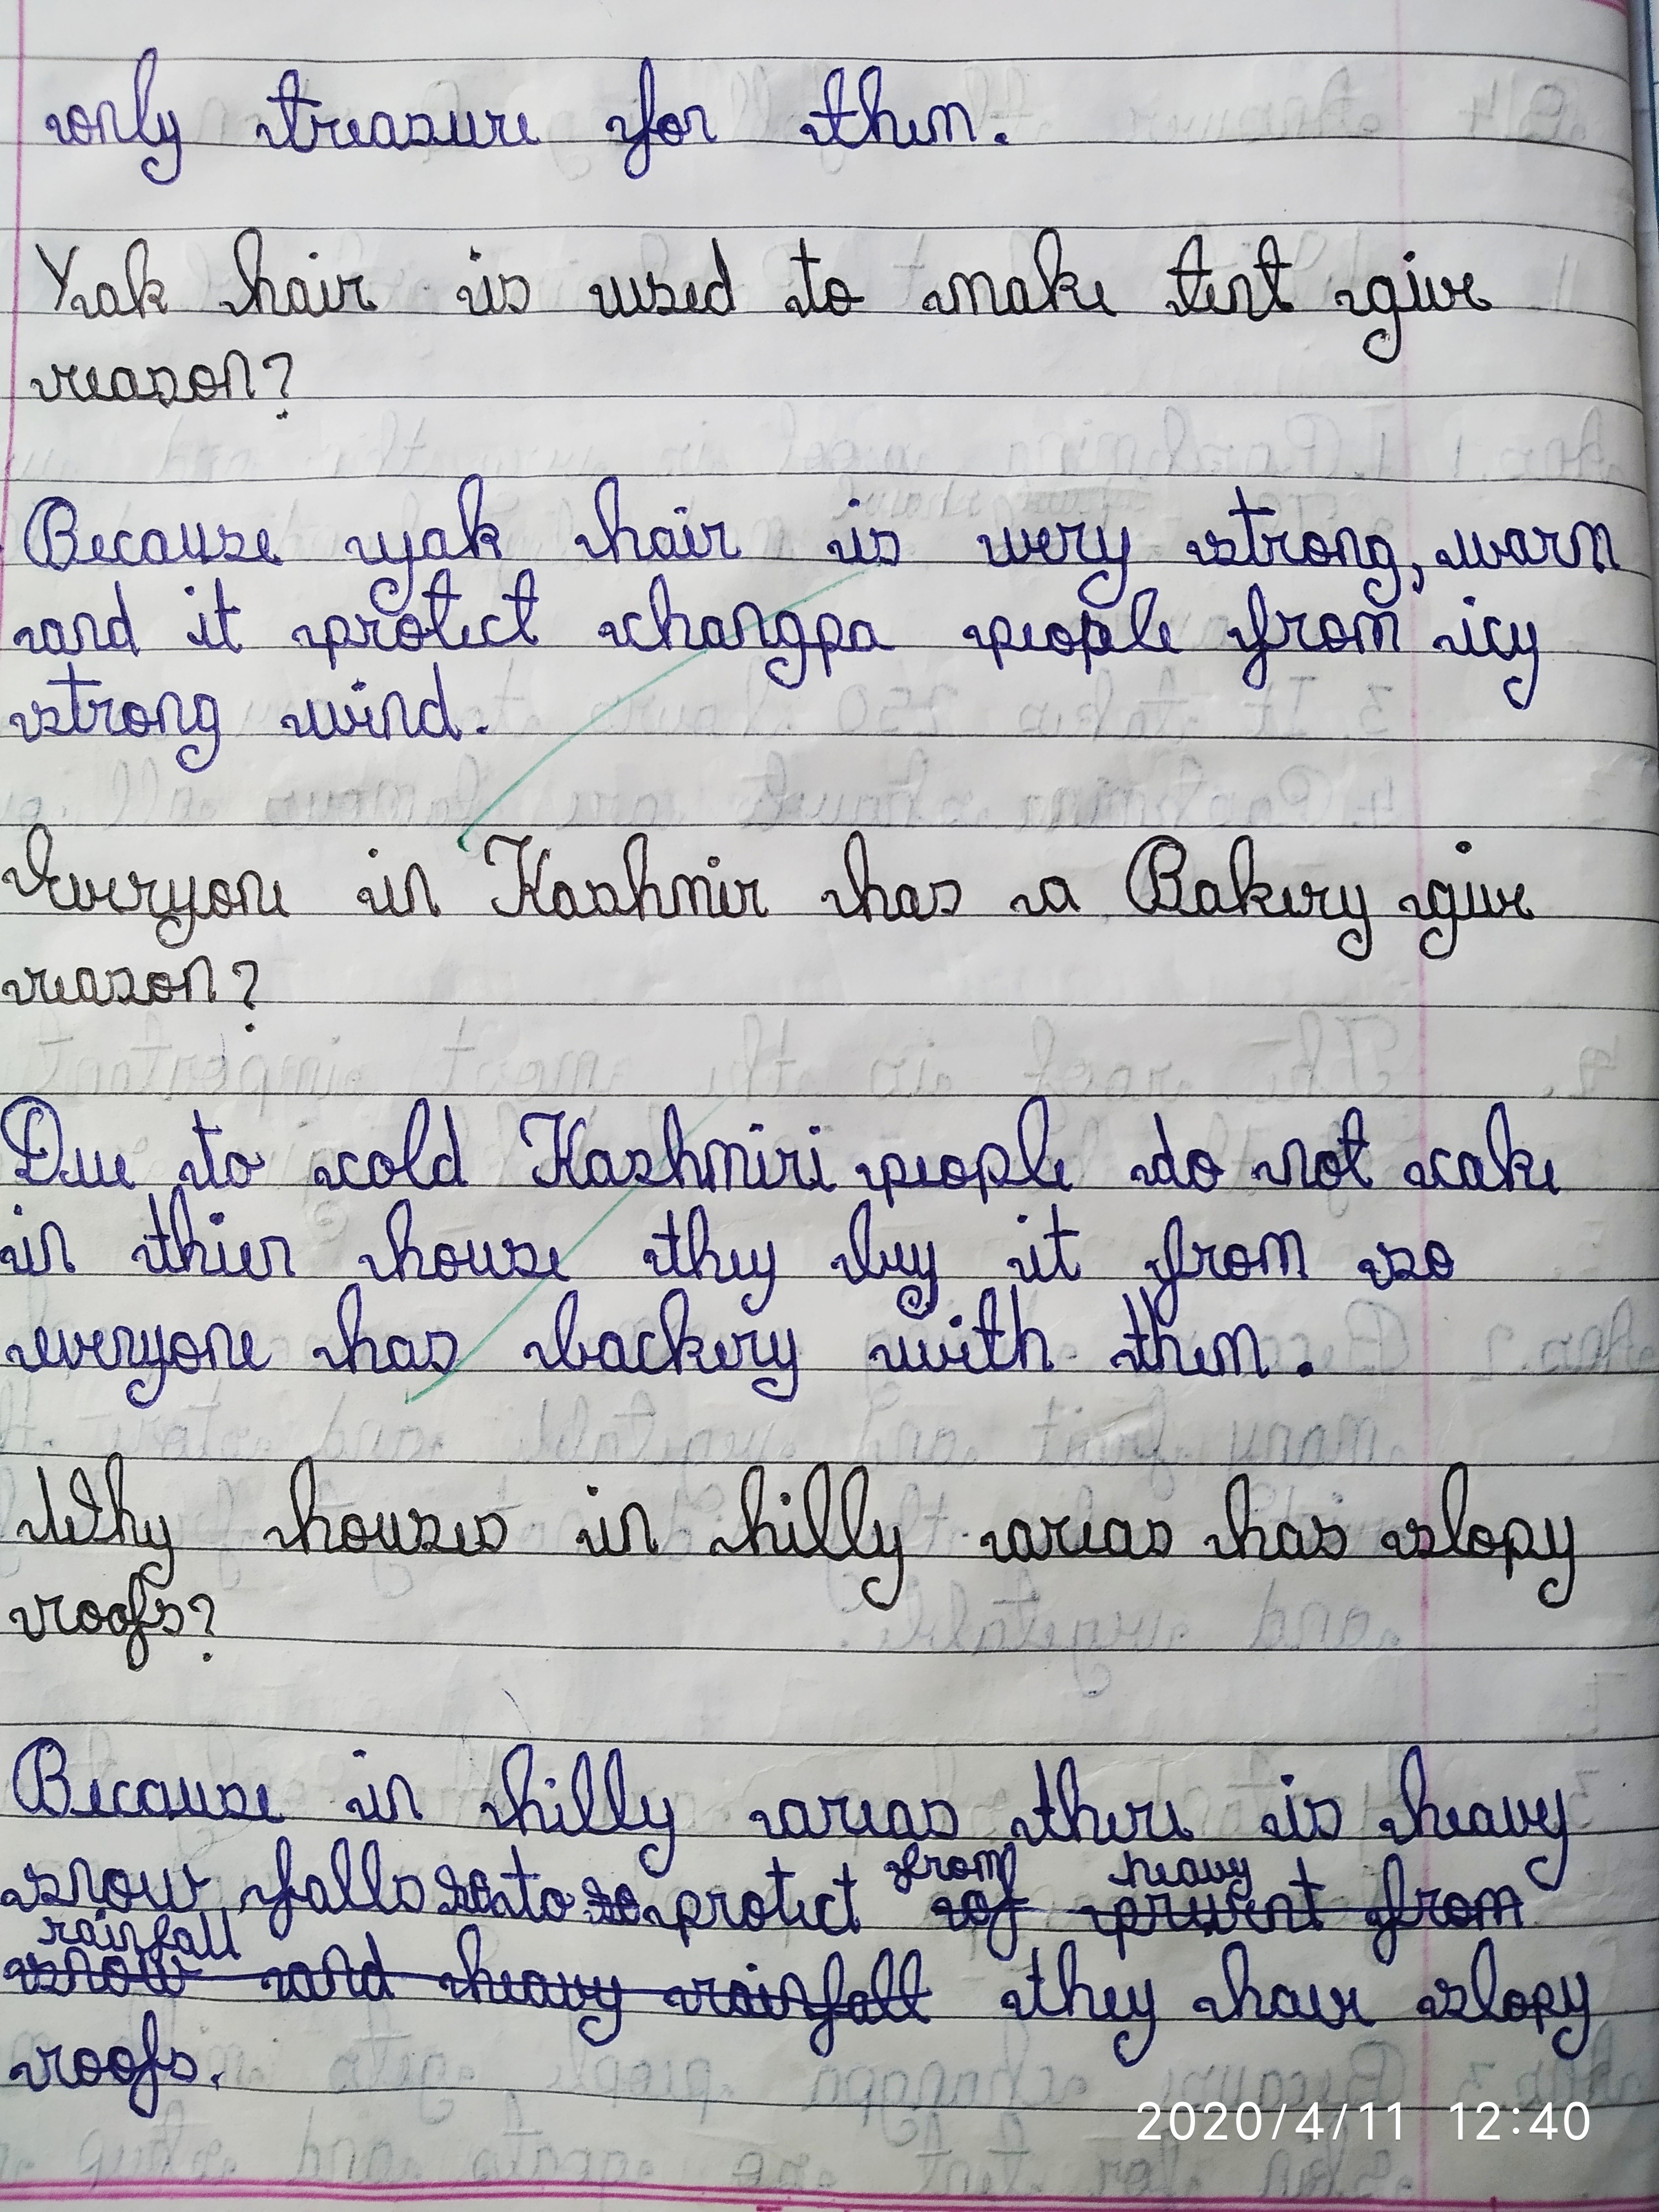 only treasure for them.
Yak hair is used to make tent give
reason?
Because yak hair is very strong, warm
and it protect changpa people from icy
strong wind.
Everyone in Kashmir has a Bakery give
reason?
Due to cold Kashmiri people do not cake
in thier house they buy it from so
everyone has backery with them.
Why houses in hilly areas has slopy
roofs?
Because in hilly areas there is heavy
from heavy
snow falls so to so protect of prevent from
rainfall
snow and heavy rainfall they have slopy
roofs.
2020/4/11 12:40